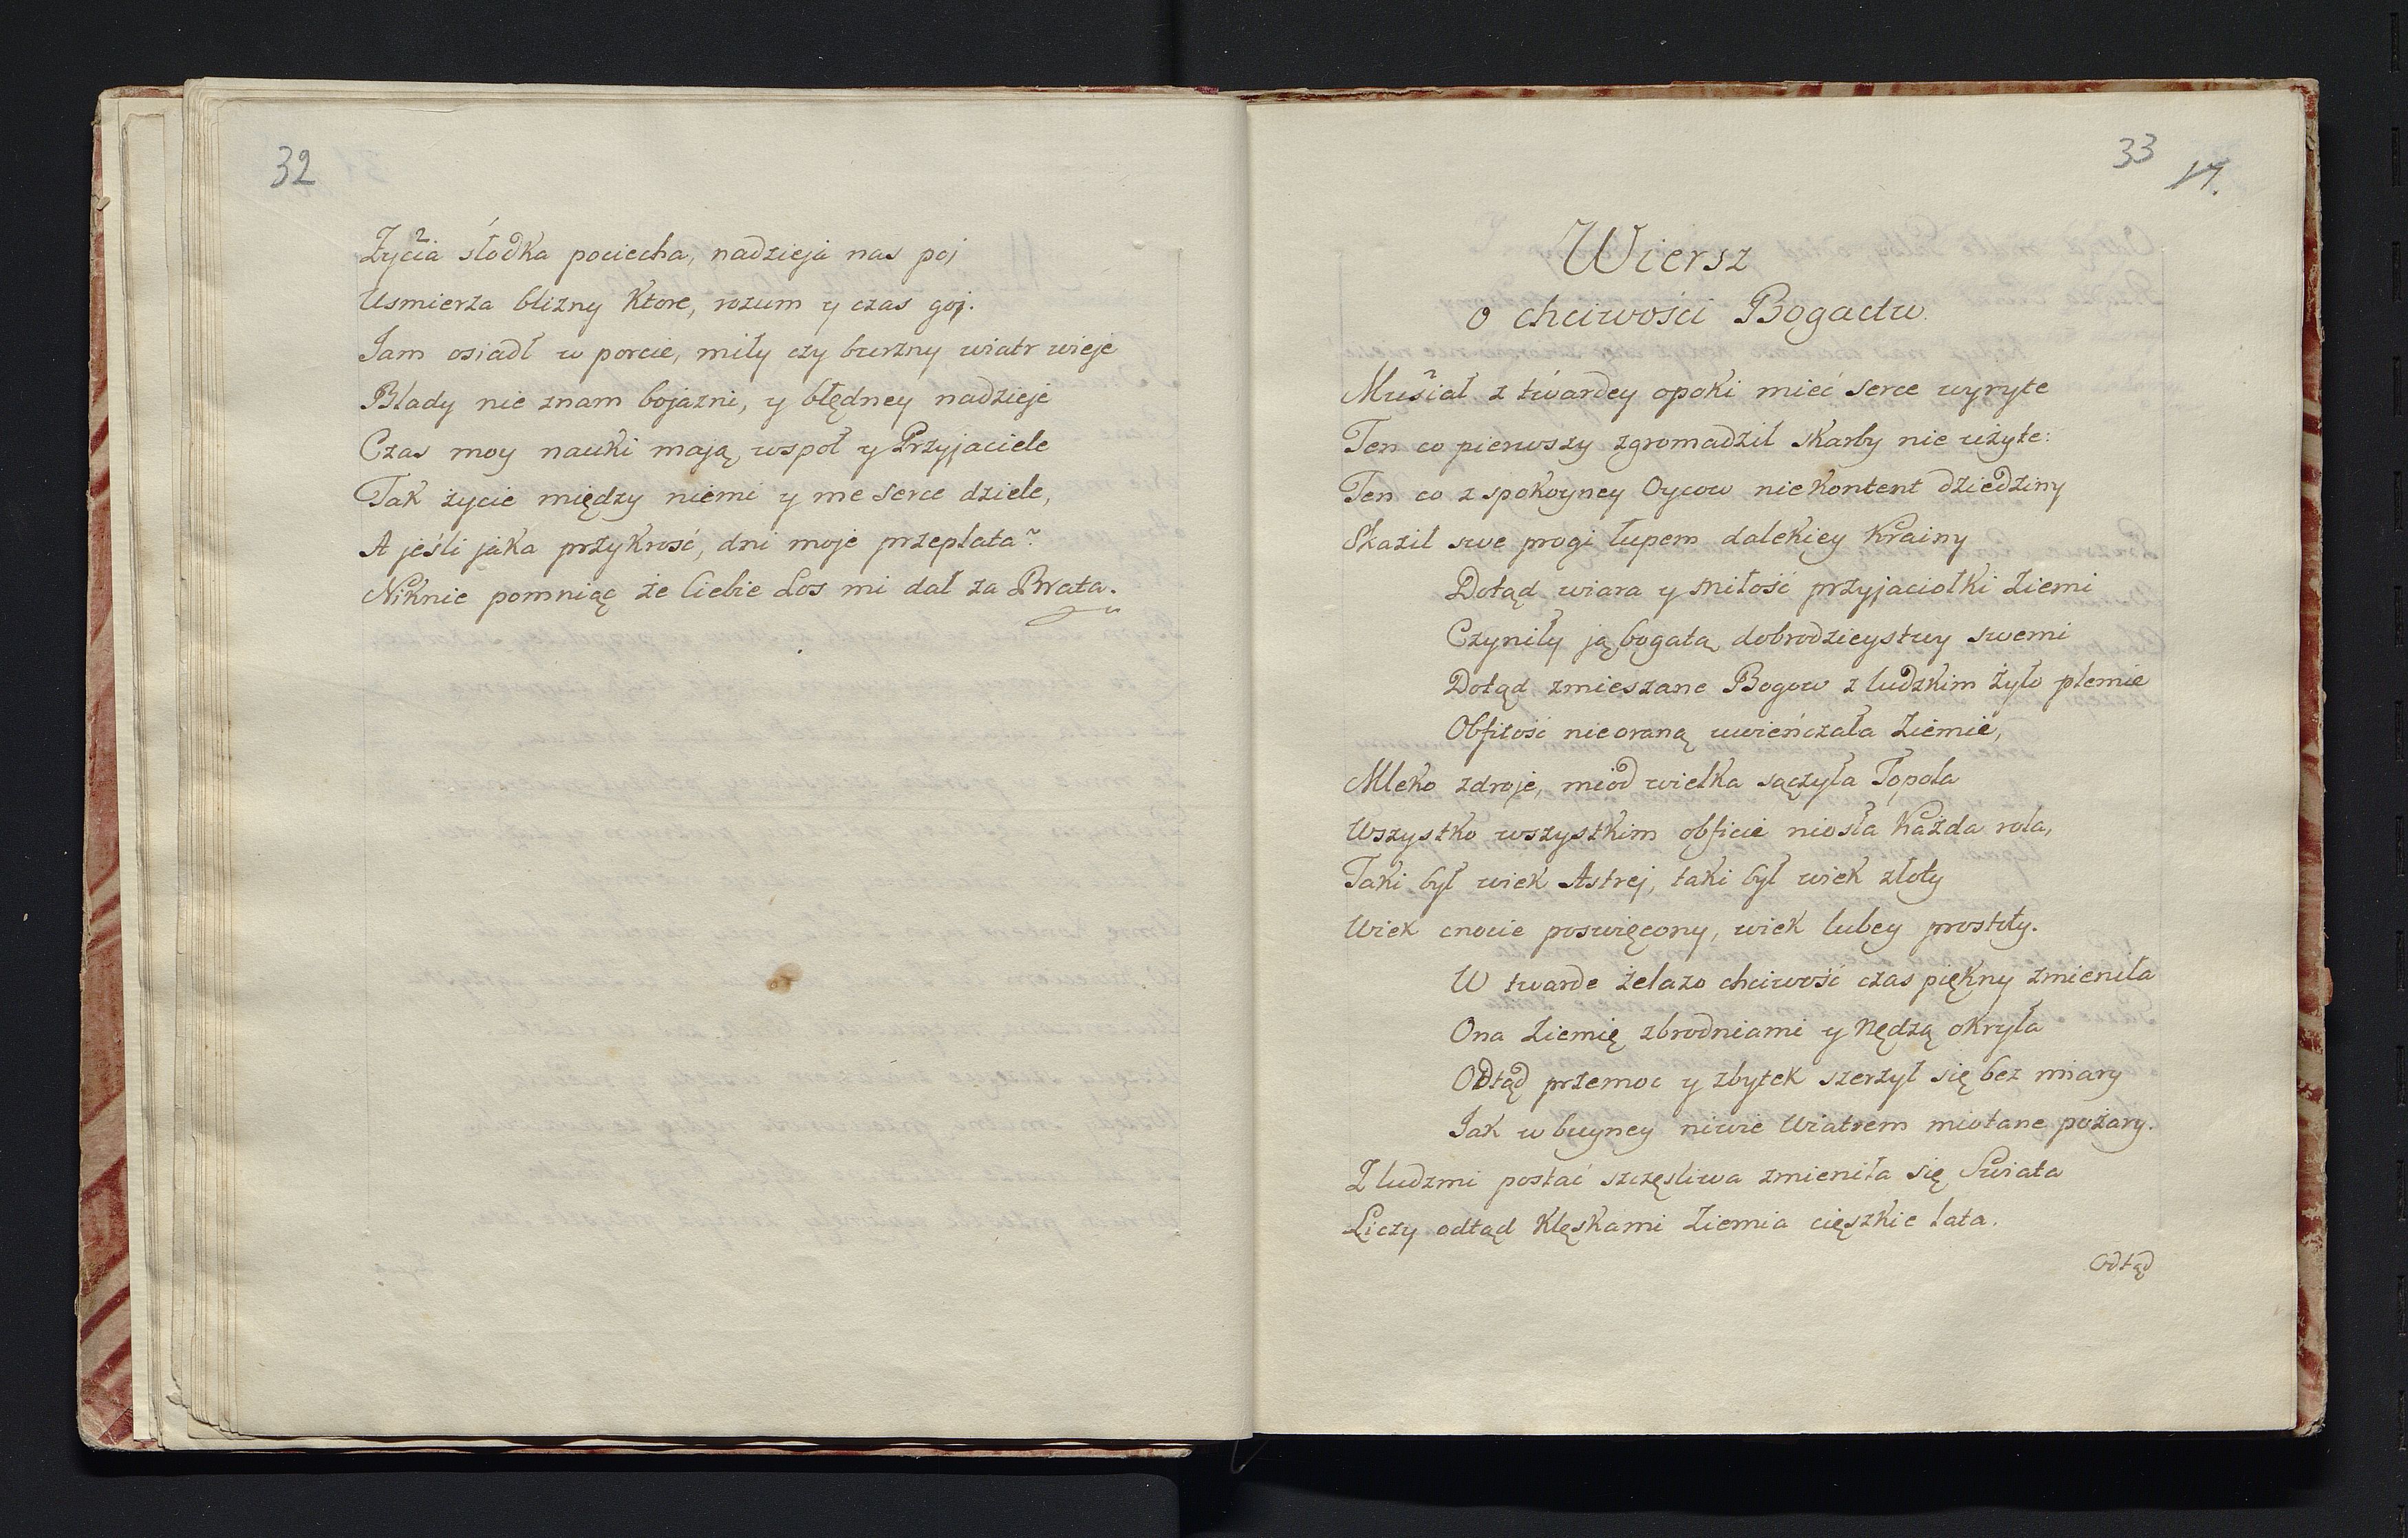 32
Życia słodka pociecha, nadzieja nas poj
Usmierza blizny ktore, rozum y czas goj.
Jam osiadł w porcie, miły czy burzny wiatr wieje
Blady nie znam bojazni, y błędney nadzieje
Czas moy nauki mają wspoł y Przyjaciele
Tak życie między niemi y me serce dziele,
A jeśli jaka przykrość, dni moje przeplata
Niknie pomniąc że Ciebie Los mi dał za Brata.
33
17.
Wiersz
o chciwości Bogactw.
Musiał z twardey opoki mieć serce wyryte
Ten co pierwszy zgromadził skarby nie użyte:
Ten co z spokoyney Oycow nie kontent dziedziny
Skaził swe progi łupem dalekiey Krainy
Dotąd wiara y miłość przyjaciołki Ziemi
Czyniły ją bogatą dobrodzieystwy swemi
Dotąd zmieszane Bogow z ludzkim żyło plemie
Obfitość nieoraną uwieńczała Ziemie,
Mleko zdroje, miod wielka sączyła Topola
Wszystko wszystkim obficie niosła każda rola,
Taki był wiek Astrej, taki był wiek złoty
Wiek cnocie poswięcony, wiek lubey prostoty.
W twarde żelazo chciwość czas piękny zmieniła
Ona Ziemię zbrodniami y Nędzą okryła
Odtąd przemoc y zbytek szerzył się bez miary
Jak w buyney niwie Wiatrem miotane pożary.
Z ludzmi postać szczęsliwa zmieniła się Swiata
Liczy odtąd klęskami Ziemia cięszkie lata.
Odtąd